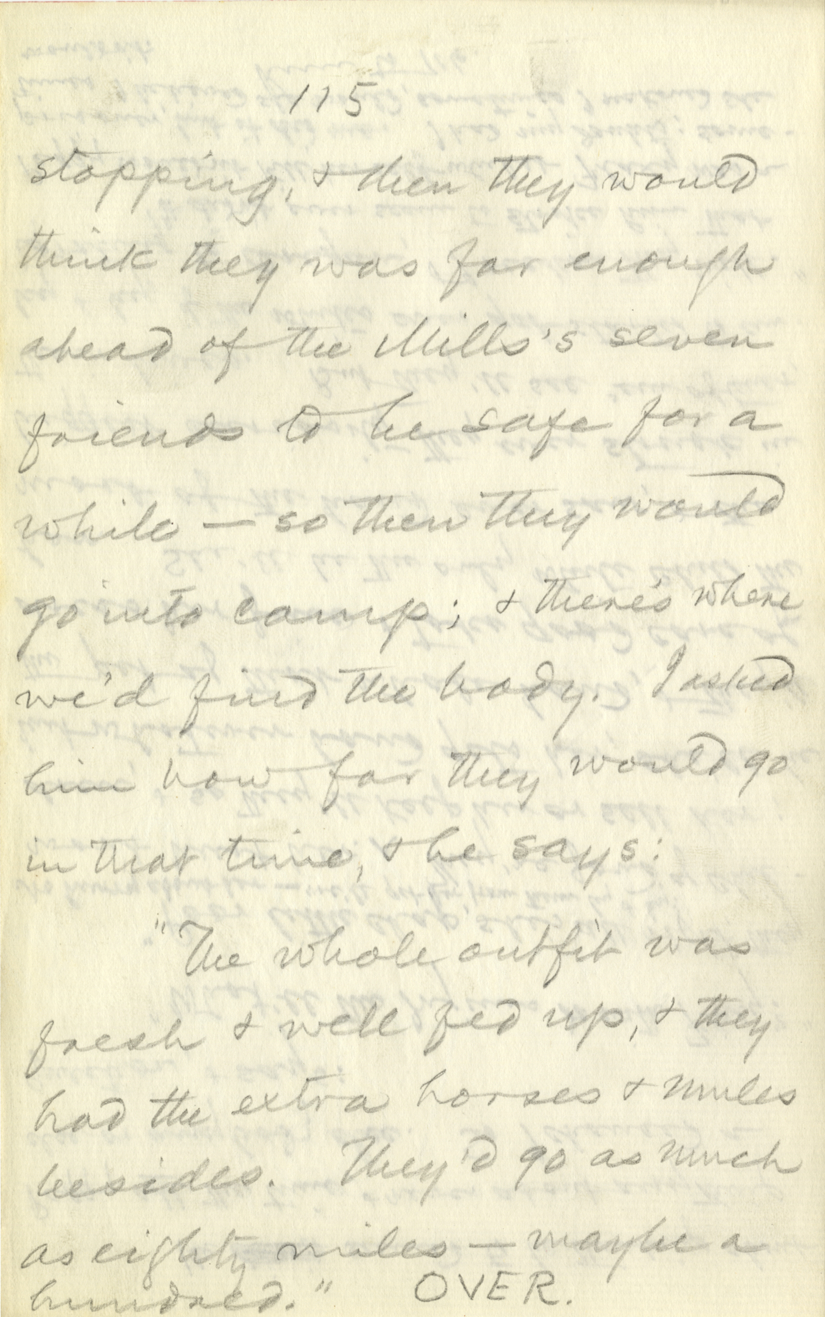 115
stopping, & then they would
think they was far enough
ahead of the Mills's seven
friends to be safe for a
while — so then they would
go into camp; & there's where
we'd find the body. I asked
him how far they would go
in that time, & he says:
"The whole outfit was
fresh & well fed up, & they
had the extra horses & mules
besides. They'd go as much
as eighty miles — maybe a
hundred." OVER.